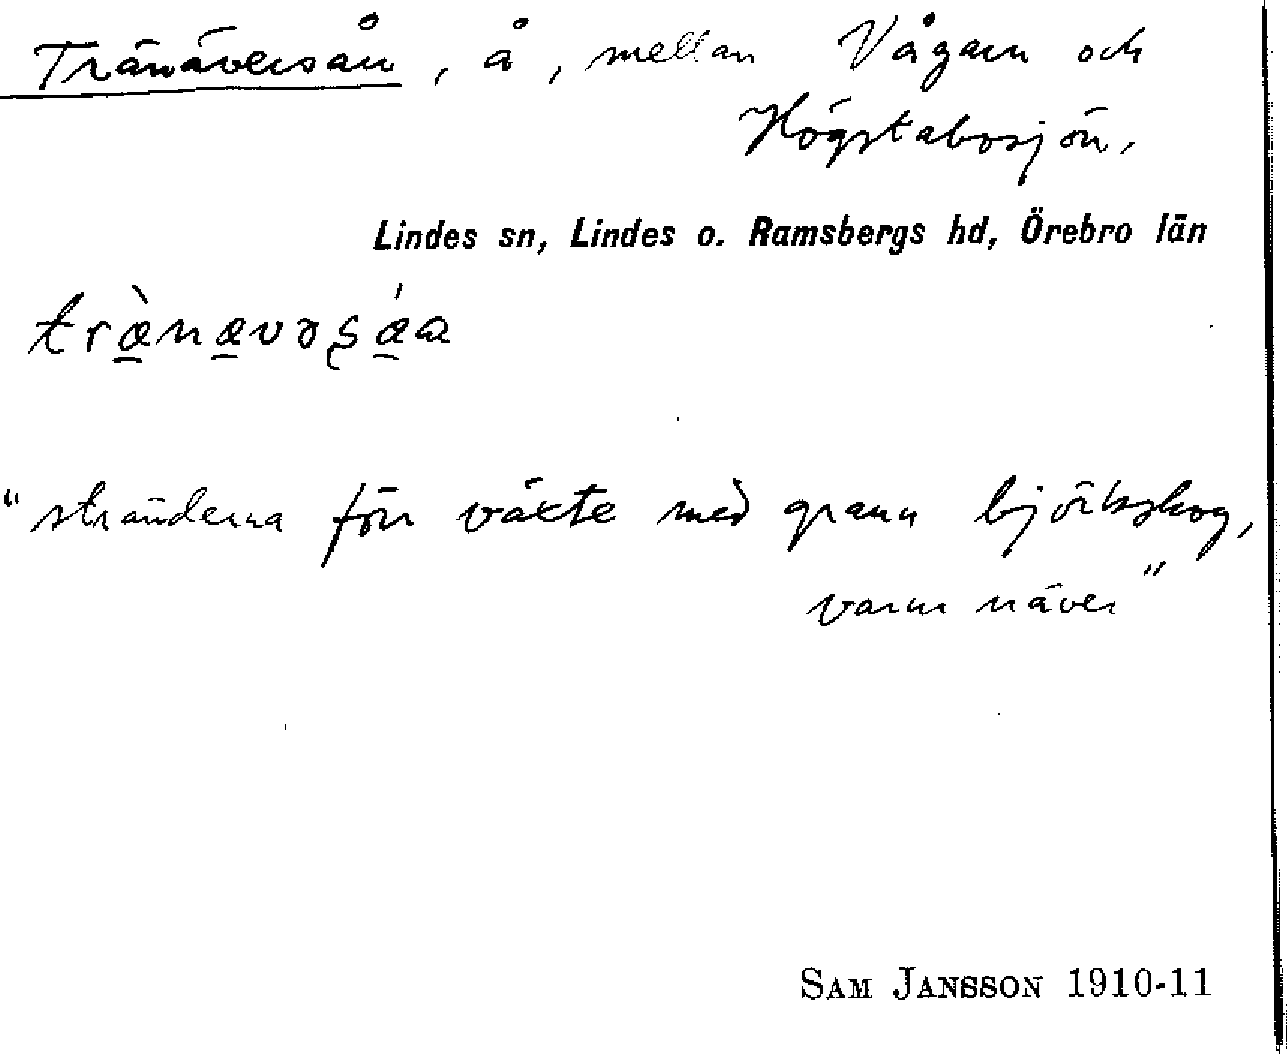 Tränäversån, å, mellan Vågan och
Högstabosjön,
Lindes sn, Lindes o. Ramsbergs hd, Örebro län
"stränderna förr växte med grann björkskog,
varur näver"
SAM JANSSON 1910-11